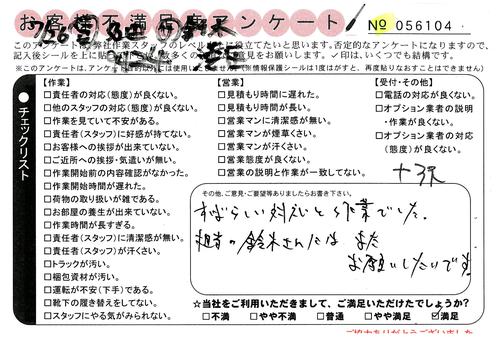 お客様不満足アンケート！
№ 056104
このアンケートは、弊社作業スタッフのレベル
に役立てたいと思います。否定的なアンケートになりますので、
記入後シールを上に貼
意見をお願いします。✓印は、いくつでも結構です。
※このアンケートは、アンケート
的以外には使用いたしません。(※情報保護シールは1度はがすと、再度貼りなおすことはできません)
チェックリスト
【作業】
□責任者の対応(態度)が良くない。
□他のスタッフの対応(態度)が良くない。
□作業を見ていて不安がある。
□責任者(スタッフ)に好感が持てない。
□お客様への挨拶が出来ていない。
□ご近所への挨拶・気遣いが無い。
□作業開始前の内容確認がなかった。
□作業開始時間が遅れた。
□荷物の取り扱いが雑である。
□お部屋の養生が出来ていない。
□作業時間が長すぎる。
□責任者(スタッフ)に清潔感が無い。
□責任者(スタッフ)が汗くさい。
□トラックが汚い。
□梱包資材が汚い。
□運転が不安(下手)である。
□靴下の履き替えをしてない。
□スタッフにやる気がみられない。
【営業】
□見積もり時間に遅れた。
□見積もり時間が長い。
□営業マンに清潔感が無い。
□営業マンが煙草くさい。
□営業マンが汗くさい。
□営業態度が良くない。
□営業の説明と作業が一致してない。
【受付・その他】
□電話の対応が良くない。
□オプション業者の説明
・作業が良くない。
□オプション業者の対応
(態度)が良くない。
その他、ご意見・ご要望等ありましたらお書き下さい。
すばらしい対応と作業でした。
担当の鈴木さんには また
お願いしたいです
☆当社をご利用いただきまして、ご満足いただけたでしょうか?
□不満 □やや不満 □普通 □やや満足 ☑満足
ご協力ありがとうございました